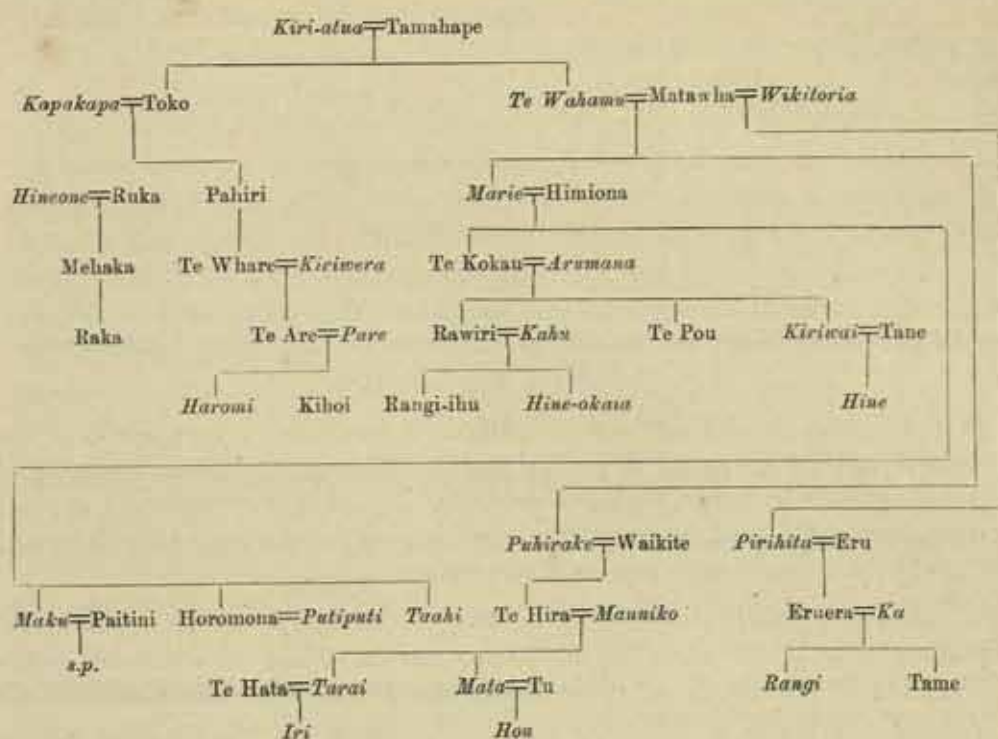 Kiri-atua=Tamahape
Kapakapa=Toko Te Wahamu=Matawha=Wikitoria
Hineone=Ruka Pahiri Marie=Himiona
Mehaka Te Whare=Kiriwera Te Kokau=Arumana
Raka Te Are=Pare Rawiri=Kahu Te Pou Kiriwai=Tane
Haromi Kihoi Rangi-ihu Hine-okaia Hine
Puhirake=Waikite Pirihita=Eru
Maku=Paitini Horomona=Putiputi Taahi Te Hira=Mauniko Eruera=Ka
s.p.
Te Hata=Tarai Mata=Tu Rangi Tame
Iri Hou